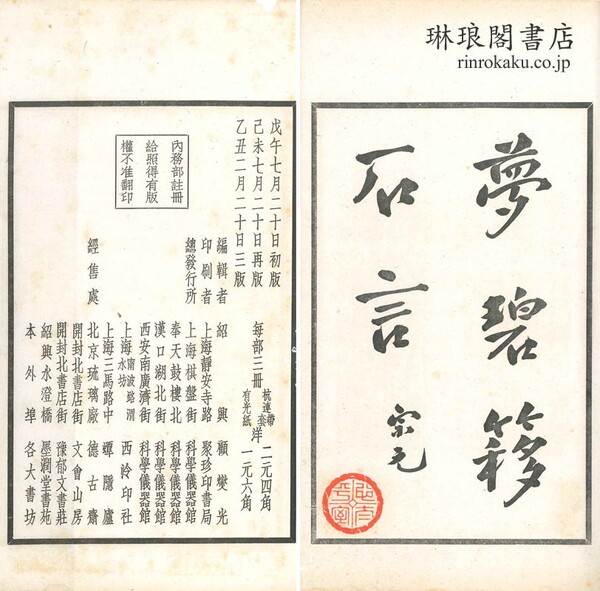 琳琅閣書店
rinrokaku.co.jp
夢碧簃
石言
戊午七月二十日初版
己未七月二十日再版
乙丑二月二十日三版
內務部註冊
給照得有版
權不准翻印
每部三冊 杭連帶套 有光紙 洋 二元四角 一元六角
編輯者 紹興 顧燮光
印刷者 上海靜安寺路 聚珍印書局
總發行所 上海棋盤街 科學儀器館
奉天鼓樓北 科學儀器館
漢口湖北街 科學儀器館
西安南廣濟街 科學儀器館
上海 西泠印社
上海三馬路中 蟫隱廬
經售處 北京琉璃廠 德古齋
開封北書店街 文會山房
開封北書店街 豫郁文書莊
紹興水澄橋 墨潤堂書苑
本外埠 各大書坊